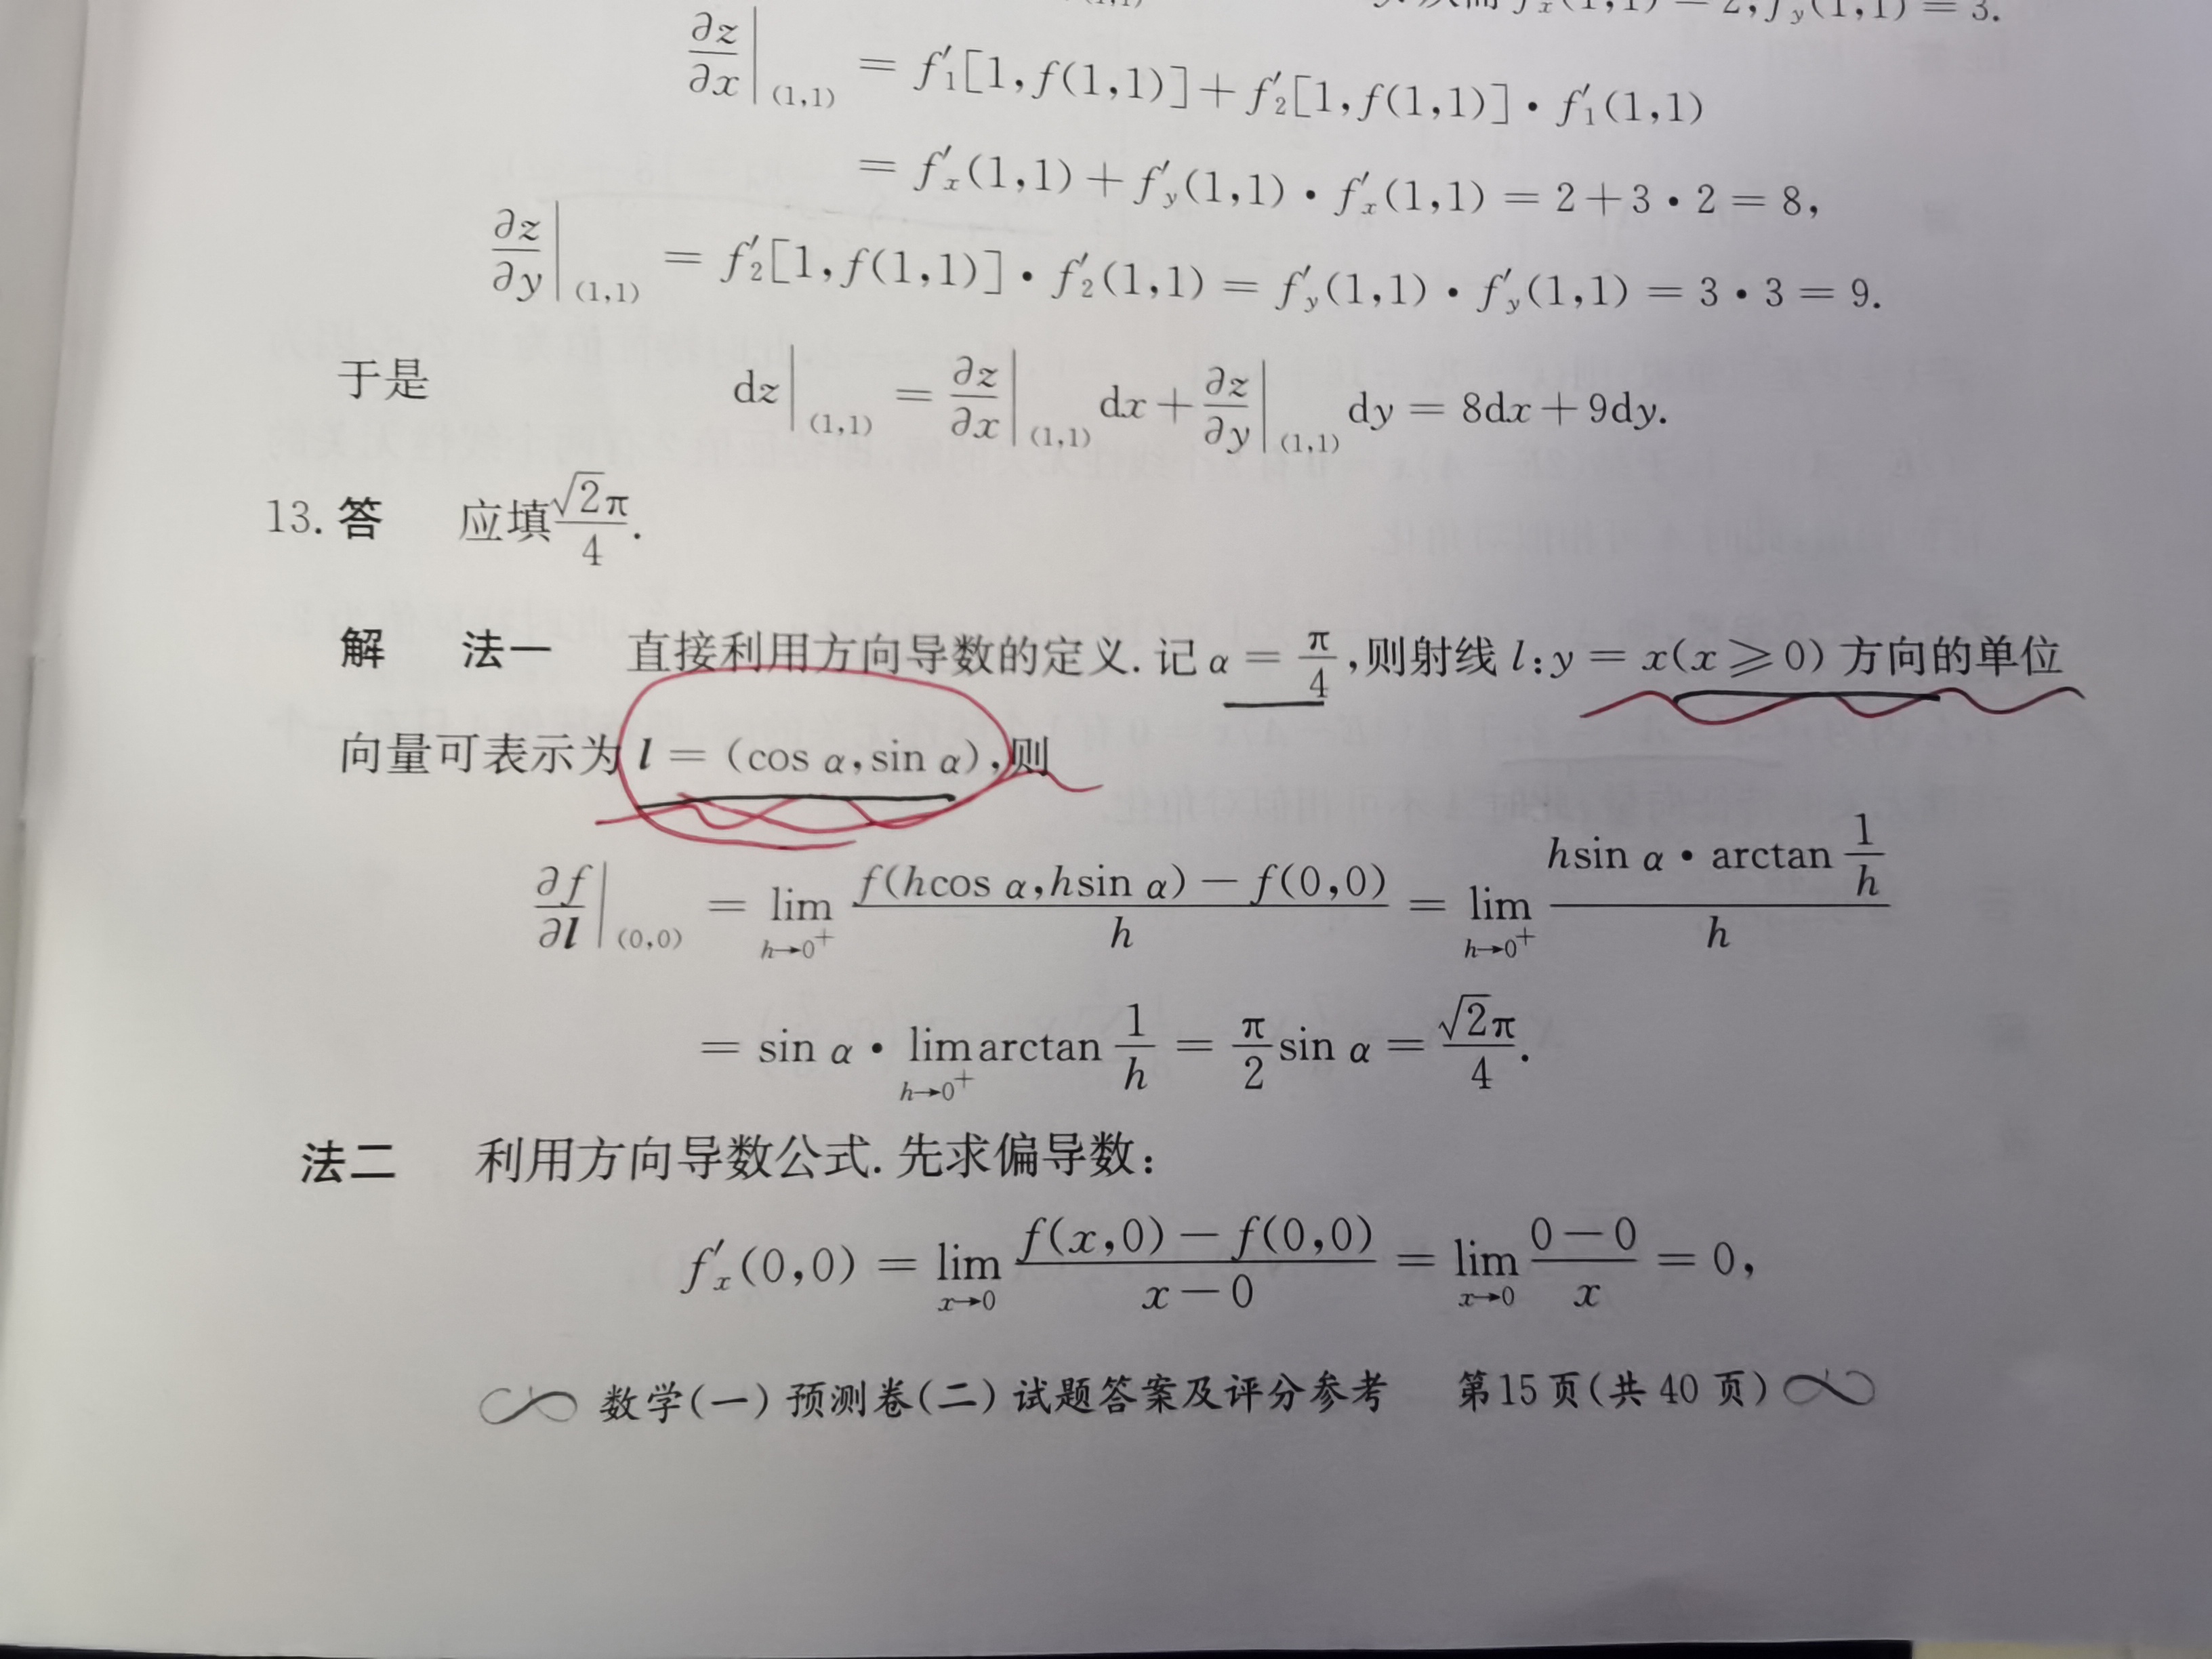 f′ₓ(1,1) = 2, f′ᵧ(1,1) = 3.
∂z/∂x|(1,1) = f′₁[1,f(1,1)]+f′₂[1,f(1,1)]·f′₁(1,1)
= f′ₓ(1,1)+f′ᵧ(1,1)·f′ₓ(1,1) = 2+3·2 = 8,
∂z/∂y|(1,1) = f′₂[1,f(1,1)]·f′₂(1,1) = f′ᵧ(1,1)·f′ᵧ(1,1) = 3·3 = 9.
于是 dz|(1,1) = ∂z/∂x|(1,1) dx+∂z/∂y|(1,1) dy = 8dx+9dy.
13. 答 应填 √2π/4.
解 法一 直接利用方向导数的定义. 记 α = π/4,则射线 l:y = x(x ⩾ 0) 方向的单位
向量可表示为 l = (cos α,sin α),则
∂f/∂l|(0,0) = lim h→0⁺ (f(hcos α,hsin α) − f(0,0))/h = lim h→0⁺ (hsin α·arctan 1/h)/h
= sin α·lim h→0⁺ arctan 1/h = π/2 sin α = √2π/4.
法二 利用方向导数公式. 先求偏导数:
f′ₓ(0,0) = lim x→0 (f(x,0) − f(0,0))/(x−0) = lim x→0 (0−0)/x = 0,
数学(一)预测卷(二)试题答案及评分参考 第15页(共40页)